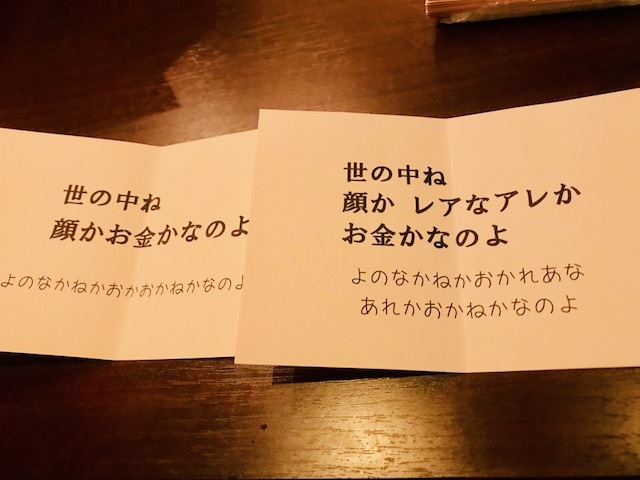 世の中ね
顔かお金かなのよ
よのなかねかおかおかねかなのよ
世の中ね
顔か レアなアレか
お金かなのよ
よのなかねかおかれあな
あれかおかねかなのよ